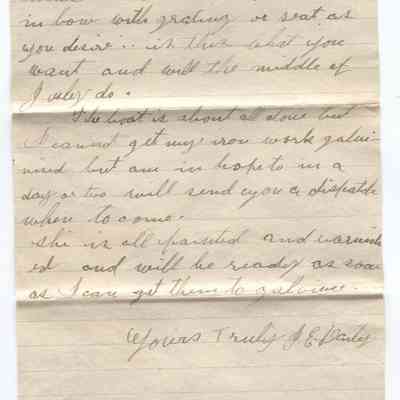 in bow with grating or seat as
you desire.. is this what you
want and will the middle of
July do.
The boat is about all done but
I cannot get my iron work galvi-
nised but am in hopes to in a
day or two will send you a dispatch
when to come.
she is all painted and varnish
ed and will be ready as soon
as I can get them to galvinise.
Yours Truly J. E.